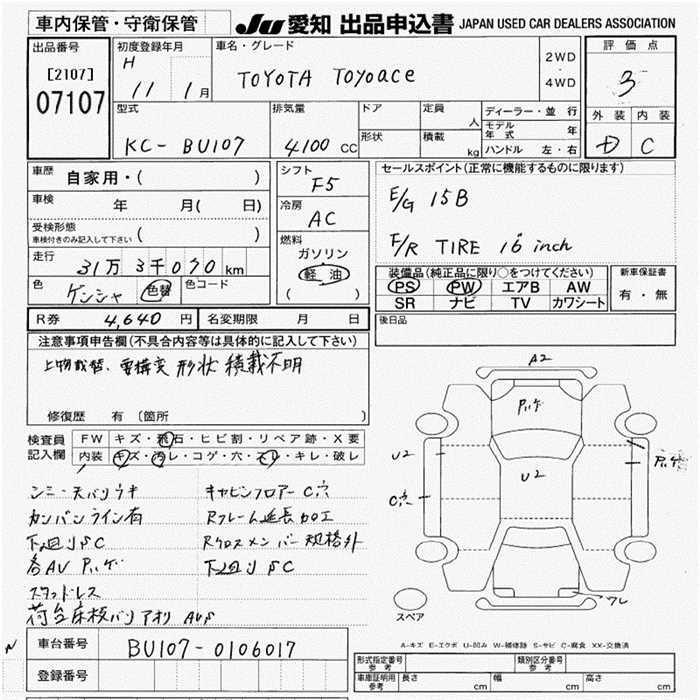 車内保管・守衛保管 JU 愛知 出品申込書 JAPAN USED CAR DEALERS ASSOCIATION
出品番号 初度登録年月 車名・グレード 2WD 評価点
[2107] H 11 1月 TOYOTA TOYOACE ・ 3
07107 4WD
型式 排気量 ドア 定員 人 ディーラー・並行 外装 内装
KC-BU107 4100 CC 形状 積載 kg モデル年式 年 D C
ハンドル 左・右
車歴 自家用・( ) シフト F5 セールスポイント(正常に機能するものに限ります)
車検 年 月( 日) 冷房 AC E/G 15B
受検形態 車検付きのみ記入して下さい ( ) 燃料 F/R TIRE 16 inch
走行 31万3千090km ガソリン 装備品(純正品に限り○をつけてください) 新車保証書
色 ゲンシャ 色替 色コード 軽油 PS PW エアB AW 有・無
( ) SR ナビ TV カワシート
R券 4,640円 名変期限 月 日 後日品
注意事項申告欄(不具合内容等は具体的に記入して下さい)
上物載替、要構変 形状 積載不明 A2
修復歴 有 〔箇所 〕
検査員 FW キズ・飛石・ヒビ割・リペア跡・X要
記入欄 内装 キズ・汚レ・コゲ・穴・スレ・キレ・破レ
U2 U2
キャビンフロアー C穴 C穴
カンバンライン有 Rフレーム延長加工
下廻りSC Rクロスメンバー規格外
下廻りSC
スタッドレス
スペア
A-キズ E-エクボ U-凹み W-補修跡 S-サビ C-腐食 XX-交換済
車台番号 BU107-0106017 形式指定番号 参考 類別区分番号 参考
登録番号 車庫証明用 参考 長さ cm 幅 cm 高さ cm